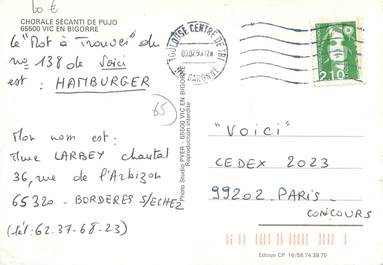 10 €
CHORALE SECANTI DE PUJO
65500 VIC EN BIGORRE
le "Mot à Trouver" du
no 138 de Voici
est : HAMBURGER
65
Mon nom est :
Mme LARBEY chantal
36, rue de l'Arbizon
65320 - BORDERES S/ECHEZ
(tél: 62.37.68.23)
© Photo Studio PYER - 65500 VIC EN BIGORRE
Reproduction interdite
TOULOUSE CENTRE DE TRI
HTE GARONNE
2,10
"VOICI"
CEDEX 2023
99202 PARIS
CONCOURS
Edition CP